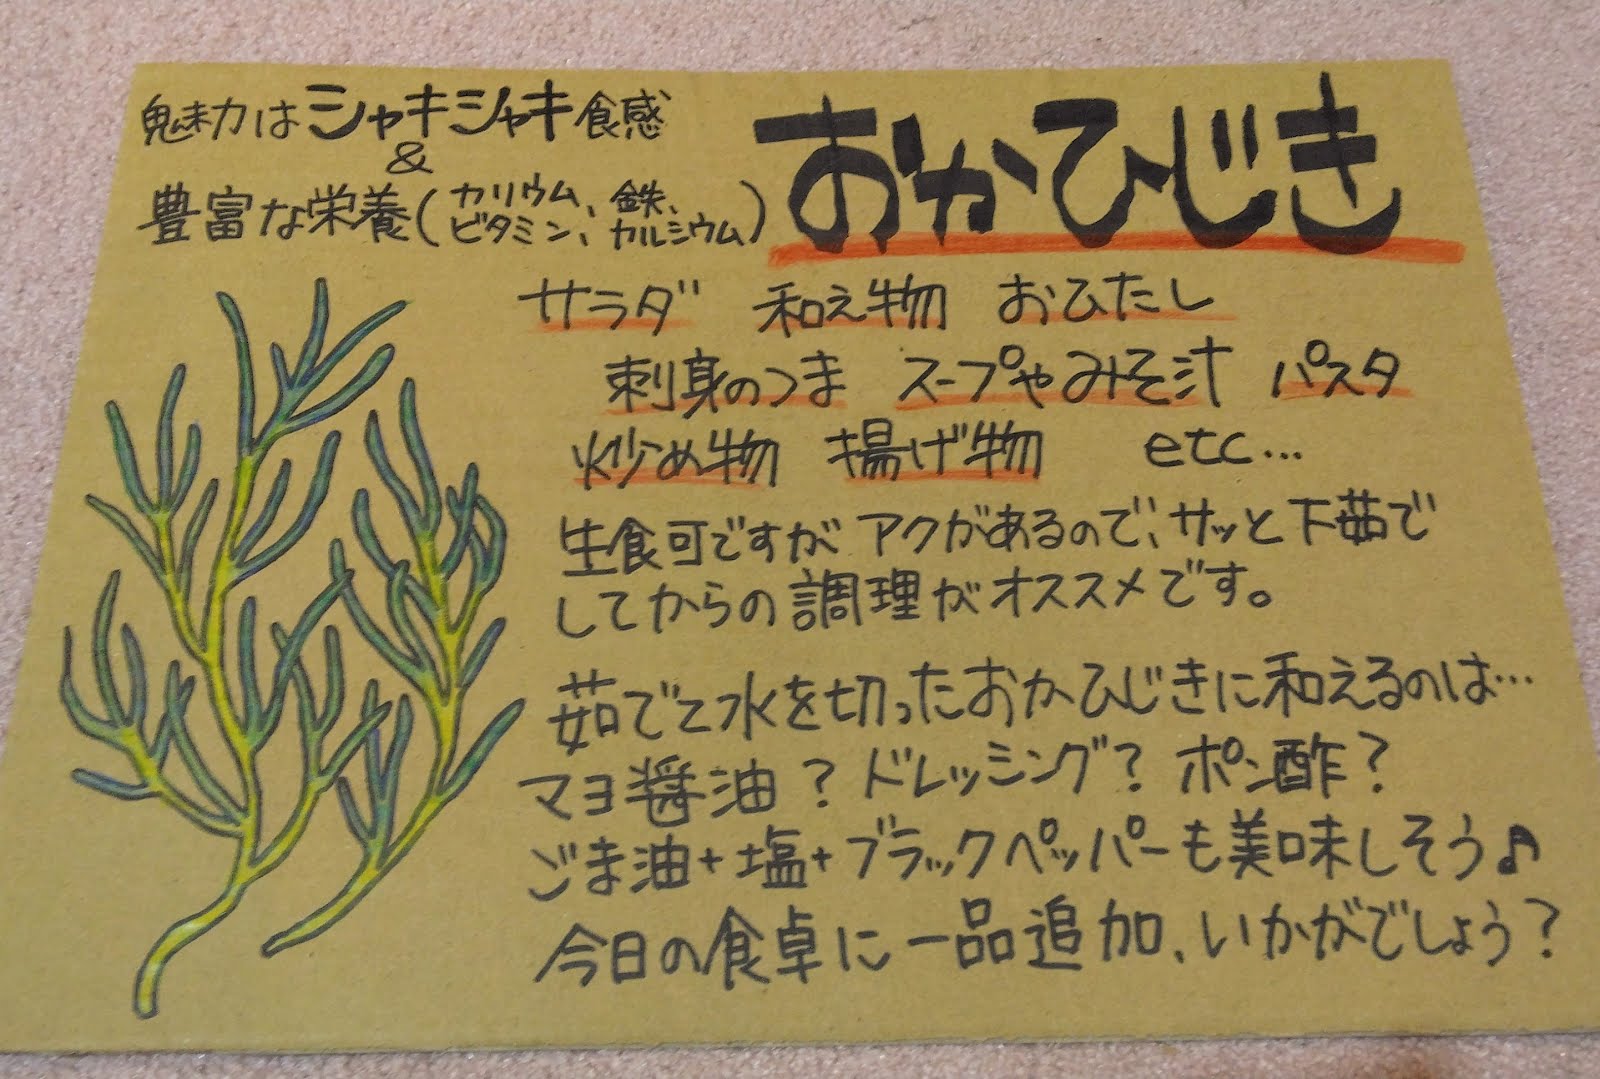 魅力はシャキシャキ食感
&
豊富な栄養(カリウム、鉄、
ビタミン、カルシウム)
おかひじき
サラダ 和え物 おひたし
刺身のつま スープやみそ汁 パスタ
炒め物 揚げ物 etc…
生食可ですがアクがあるので、サッと下茹で
してからの調理がオススメです。
茹でて水を切ったおかひじきに和えるのは…
マヨ醤油?ドレッシング?ポン酢?
ごま油+塩+ブラックペッパーも美味しそう♪
今日の食卓に一品追加、いかがでしょう?